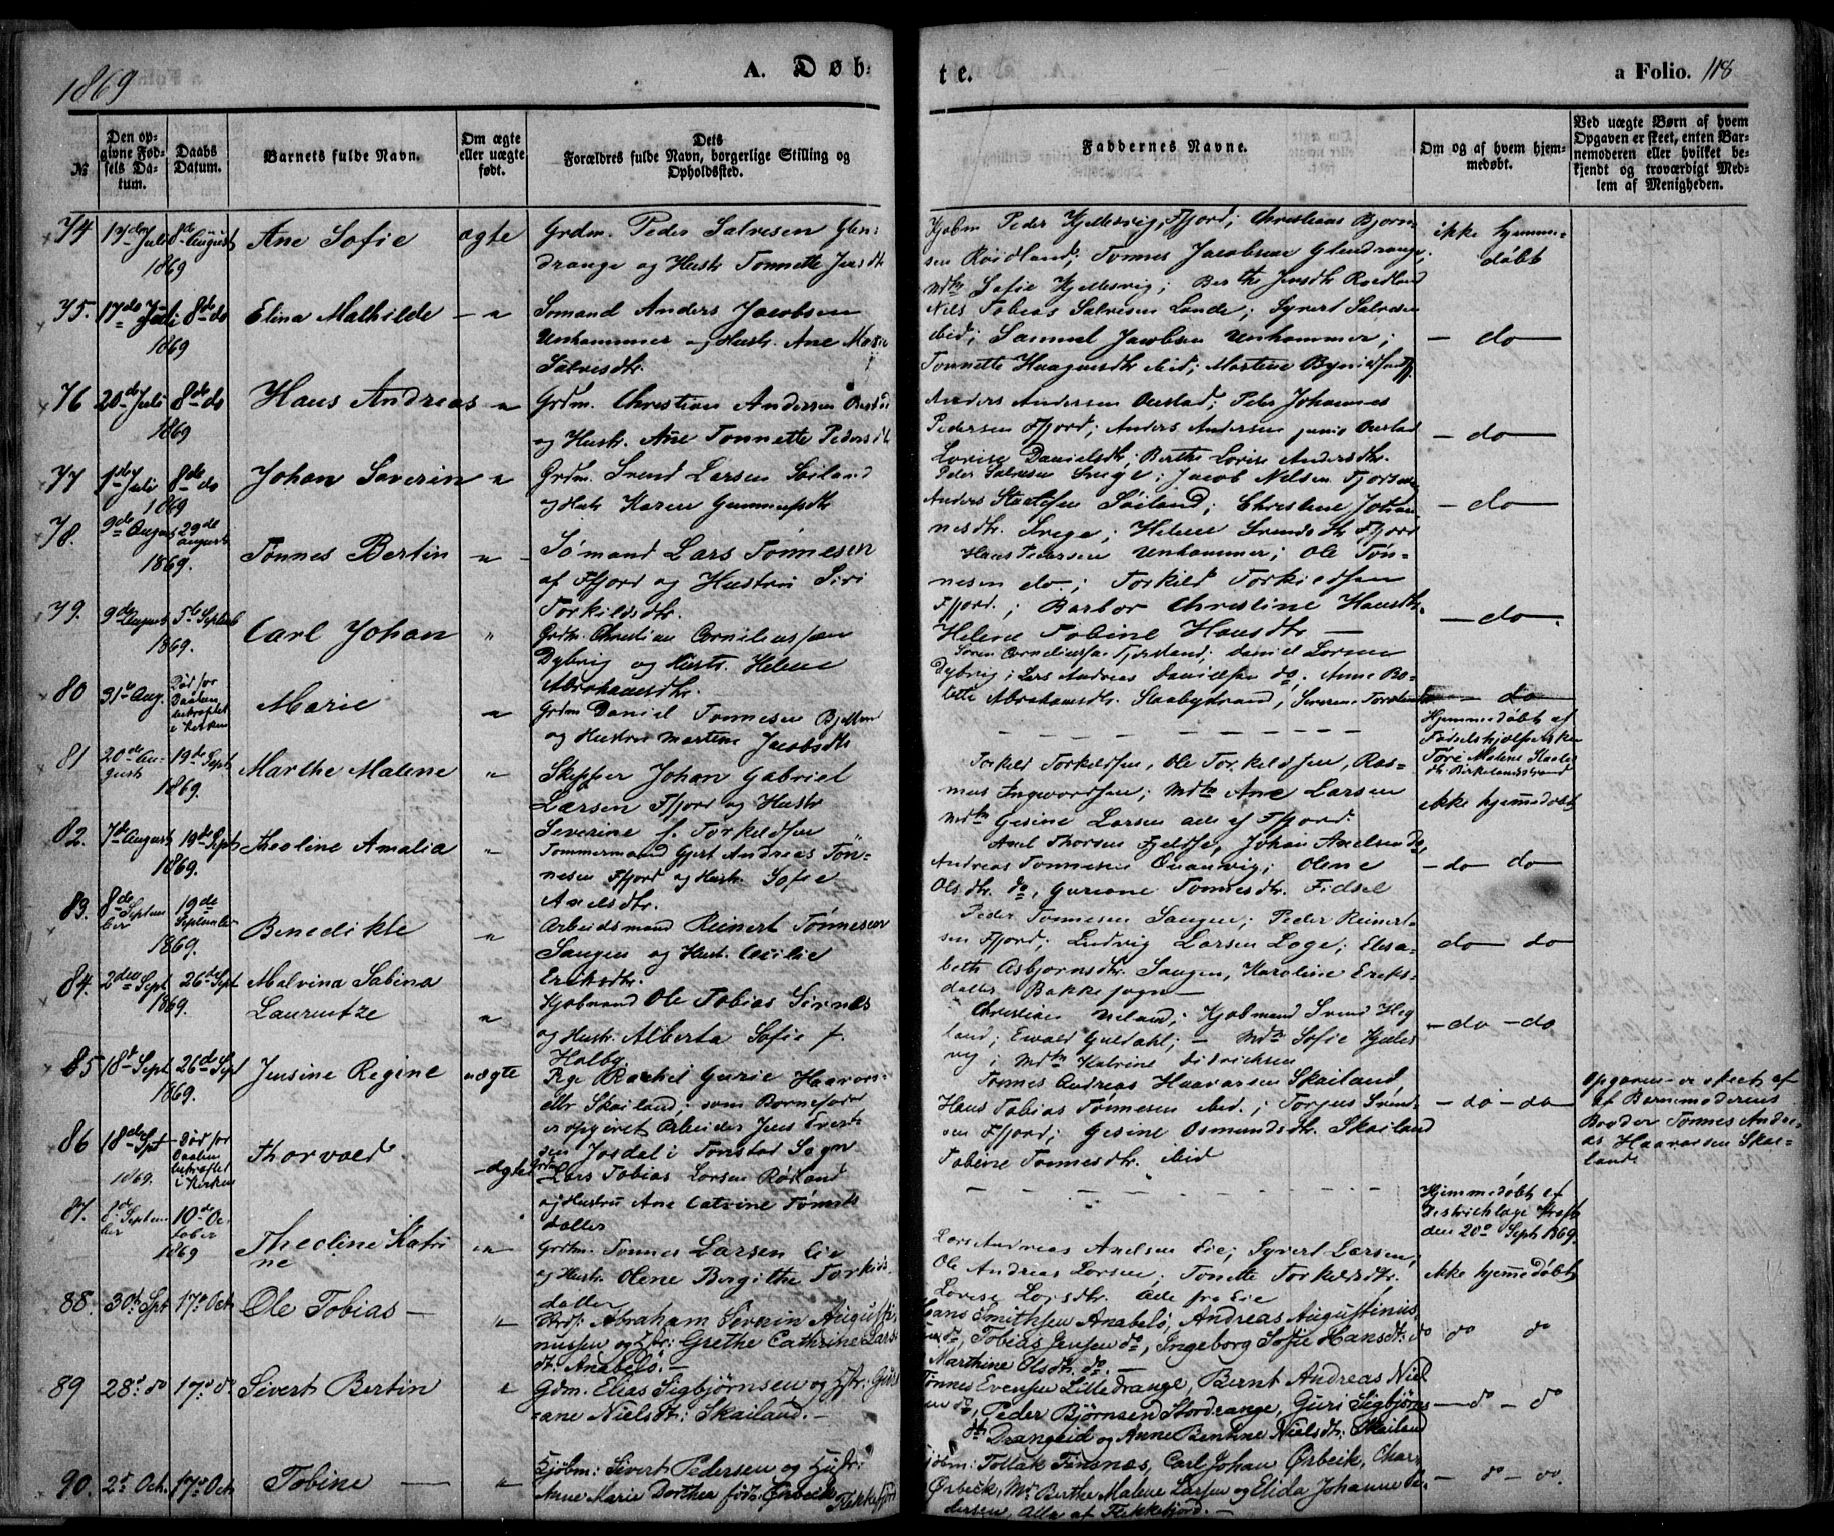 1869
A. Døb-
te.
a Folio. 118
№
Den op-
givne Fød-
sels Da-
tum.
Daabs
Datum.
Barnets fulde Navn.
Om ægte
eller uægte
født.
Dets
Forældres fulde Navn, borgerlige Stilling og
Opholdssted.
Faddernes Navne.
Om og af hvem hjem-
medøbt.
Ved uægte Børn af hvem
Opgaven er skeet, enten Bar-
nemoderen eller hvilket be-
kjendt og troværdigt Med-
lem af Menigheden.
74
Juli 8de August
1869
Ane Sofie
ægte
Grdm. Peder Salvesen Glen-
drange og Hustr Tonnette
Kjøbm Peder Hjellesvig, Fjord; Christians Bjorn-
sen Roidland; Tonnes Jacobsen Glendrange,
Mdm Sofie Hjellesvig; Berthe Jensdtr Roidland
ikke hjemme-
døbt
75.
17de Juli 8de do
1869
Elina Mathilde
Sømand Anders Jacobsen
Unhammer og Hustr. Ane
Salvesdtr.
Nils Tobias Salvesen Lande; Syvert Salvesen
ibid; Samuel Jacobsen Unhammer;
Tonnette Haagensdtr ibid; Martine
do
76
20de Juli 8de do
1869
Hans Andreas
Grdm. Christian Andersen
og Hustr. Ane Tonnette Pedersdtr
Anders Andersen Oustad; Peter Johannes
Pedersen Fjord; Anders Andersen junio Oustad
Lovise Danielsdtr, Berthe Lovise Andersdtr.
do
77
1de Juli 8de do
1869
Johan Severin
Grdm. Svend Larsen Soiland
og Hustr Karen
Peder Salvesen Svege; Jacob Nilsen Fjord
Anders Søiland; Christine Johan-
nesdtr. Svege; Helene Svendsdtr Fjord
do
78.
9de August 29de
august
1869.
Tønnes Bertin
Sømand Lars Tønnesen
af Fjord og Hustru Siri
Torkildsdtr.
Hans Pedersen Unhammer; Ole Tøn-
nesen do; Torkild Torkildsen
Fjord.; Barbor Christine Hansdtr.
Helene Tobine Hansdtr
do
79.
9de August 5te Septemb
1869.
Carl Johan
Grdm. Christian Corneliussen
Dybvig og Hustr. Helene
Abrahamsdtr.
Soren Corneliussen; Daniel Larsen
Dybvig; Lars Andreas Davidsen do; Anne Bo-
lette Abrahamsdtr. Staabystrand,
do
80
31te Aug.
Død før
Daaben
bekræftet
i Kirken
Marie
Grdm Daniel Tonnesen
og Hustru Martine Jacobsdtr
Hjemmedøbt af
Fødselshjælpersken
Malene
Birkelandsstrand
81
20de Au-
gust 19de Sept
1869.
Marthe Malene
Skipper Johan Gabriel
Larsen Fjord og Hustr
Severine f. Torkeldsen
Torkeld Torkeldsen, Ole Torkeldsen, Ras-
mus Ingwordsen; Mdm Ane Larsen
Mdm Gesine Larsen alle af Fjord.
ikke hjemmedøbt
82.
7de August 19de Sept
1869.
Theoline Amalia
Tommermand Gjert Andreas Ton-
nesen Fjord og Hustr. Sofie
Axelsdtr.
Axel Thorsen Fjeldse, Johan Axelsen do,
Andreas Tonnesen; Olene
Olsdtr. do, Guriane Tonnesdtr. Fidsel
do do
83.
8de Septem-
ber 19de
September
1869.
Benedikte
Arbeidsmand Reinert Tønnesen
Saugen og Hustr. Cecilie
Eriksdtr.
Peder Tonnesen Saugen; Peder Reinert-
sen Fjord; Ludvig Larsen Loge; Elisa-
beth Asbjornsdtr. Saugen, Karoline Eriks-
datter Bakke sogn
do do
84.
2den Sept 26de Sept
1869.
Malvina Sabina
Laurentze
Kjøbmand Ole Tobias Sirnæs
og Hustr. Alberta Sofie f.
Holby
Christian; Kjøbmand Svend Heg-
land; Ewald Guldahl; Mdm Sofie Hjelles-
vig; Mdm Katrine Didrichsen
do do
85
18de Sept 26de Sept
1869.
Jensine Regine
uægte
Pge Rachel Gurie Haavars-
dtr Skailand; som Barnefader
er opgivet Arbeider Jens Evert-
sen Josdal i Tonstad Sogn
Tonnes Andreas Haavarsen Skailand,
Hans Tobias Tønnesen ibid.; Torjus Svend-
sen Fjord; Gesine Osmundsdtr. Skailand
Tobine Tonnesdtr. ibid
do do
Opgaven er skeet af
af Barnemoderens
Broder Tonnes Andre-
as Haavarsen Skai-
land
86
18de Sept
1869.
Død før
Daaben
bekræftet
i Kirken
Thorvald
ægte
Lars Tobias Larsen Røiland
og Hustru Ane Catrine Tønnes
datter
Hjemmedøbt af
Districtslæge Kraft
den 20de Sept 1869.
87.
8de Septem-
ber 10de Oc-
tober
1869
Theoline Katri-
ne
Grdm. Tonnes Larsen Eie
og Hustr. Olene Bergithe Torkilds
datter
Lars Andreas Axelsen Eie; Syvert Larsen,
Ole Andreas Larsen; Tonette Torkeldsdtr.
Lovise Larsdtr. Alle fra Eie
ikke hjemmedøbt
88.
30te Spt 17de Oct
Ole Tobias
Brdr: Abraham Severin Augusti-
nussen og Hr: Grethe Cathrine Lars-
dt: Anabelø.
Hans Smithsen Anabelø, Andreas Augustinius-
sen do, Tobias Jensen do, Ingeborg Sofie Hansdtr: do
Marthine Olsdtr. do.
do do
89
28de do 17de do
Sivert Bertin
Gdm. Elias Sigbjørnsen og Hstr: Guri-
ane Nielsdt: Skailand.
Tønnes Evensen Lilledrange, Bernt Andreas Niel-
sen do, Peder Bjørnsen Stordrange, Guri Sigbjørns-
dtr Drangeid og Anne Bentine Nielsdt: Skailand
do do
90.
2de Oct. 17de Oct
Tobine
Kjøbm: Sivert Pedersen og Hustr:
Anne Marie Dorthea født Ørbeck Flekkefjord
Kjøbm: Tollak Tinsnæs, Carl Johan Ørbeck, Char.
Ørbeck, Mdm Berthe Malene Larsen og Elida Johanne Pe-
dersen, Alle af Flekkefjord.
do do